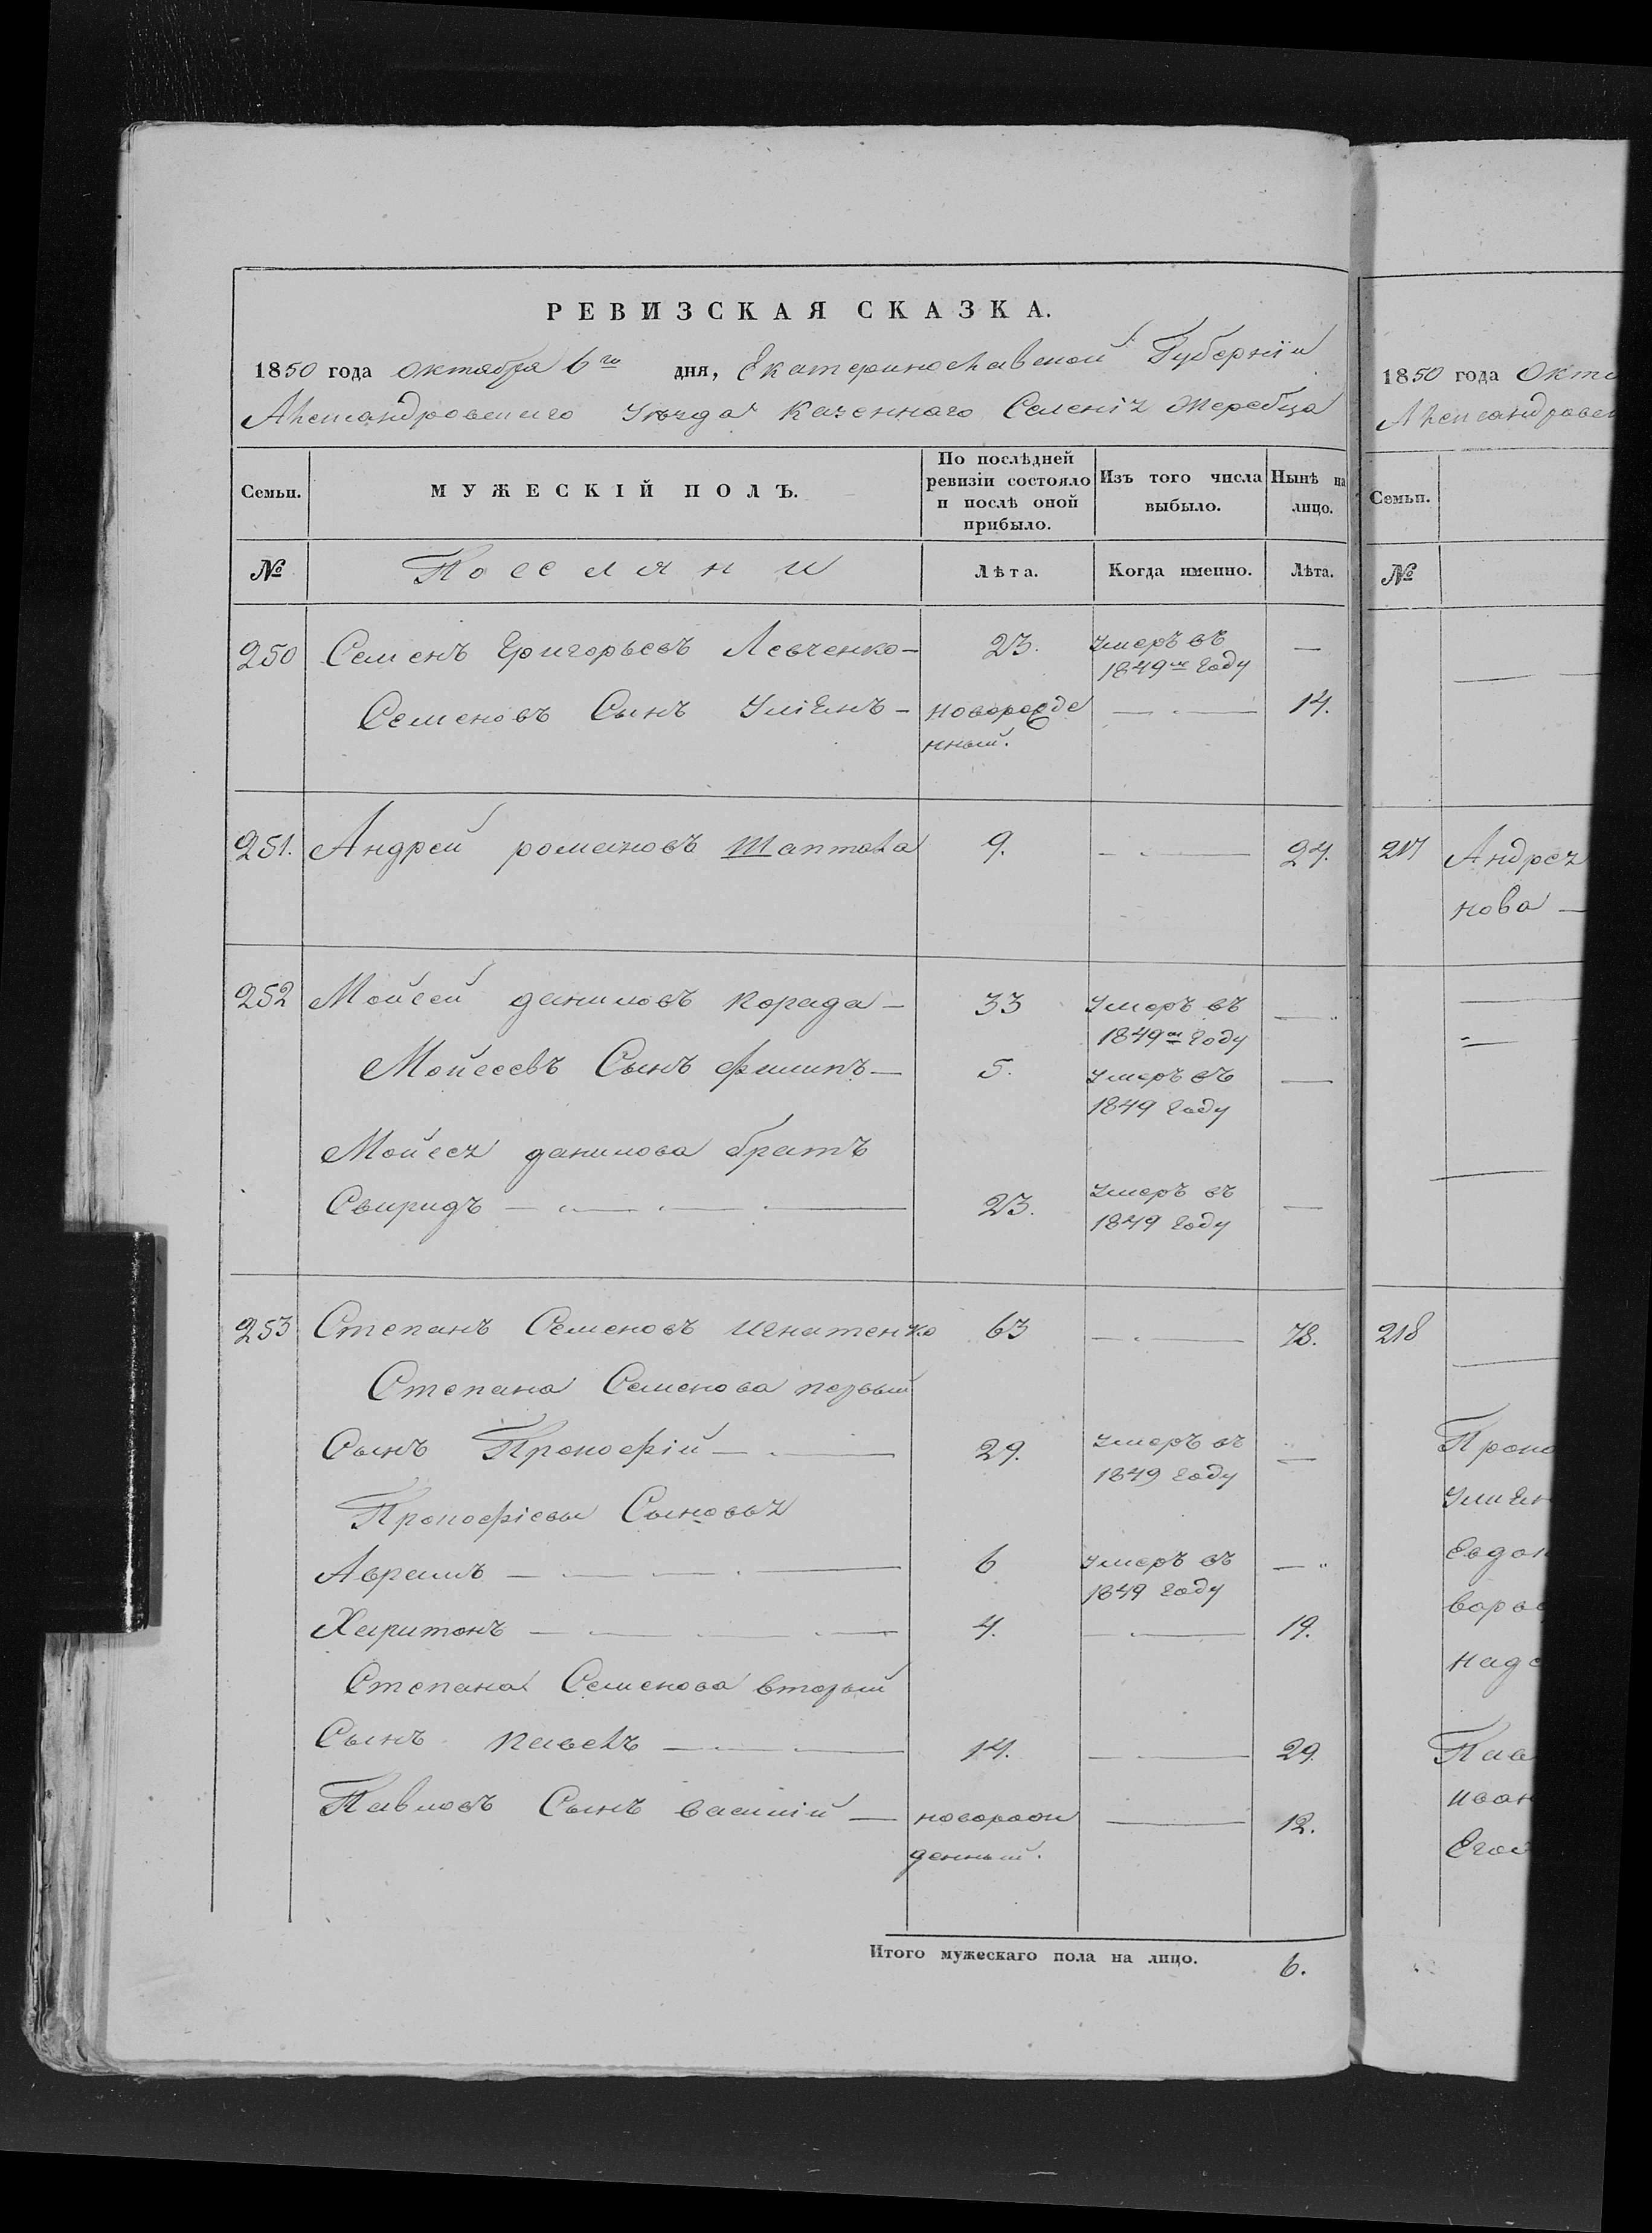 РЕВИЗСКАЯ СКАЗКА.
1850 года октября 6го дня, Екатеринославской Губерніи
Александровскаго Уѣзда Казеннаго Селенія Жеребца
Семьи. МУЖЕСКІЙ ПОЛЪ. По послѣдней ревизіи состояло и послѣ оной прибыло. Изъ того числа выбыло. Нынѣ на лицо.
№ Поселяни Лѣта. Когда именно. Лѣта.
250 Семенъ Григорьевъ Левченко - 23. Умеръ въ 1849м году —
Семеновъ Сынъ - новорожде нный. — 14.
251. Андрей романовъ Шаптала 9. — 24.
252 Мойсей даниловъ Корада - 33 Умеръ въ 1849м году —
Мойсеевъ Сынъ филипъ — 5. Умеръ въ 1849 году —
Мойсея данилова братъ
Свиридъ — 23. Умеръ въ 1849 году —
253 Степанъ Семеновъ игнатенко 63 — 78.
Степана Семенова первый
Сынъ Прокофій — 29. Умеръ въ 1849 году —
Прокофіевы Сыновья
Аврамъ — 6 Умеръ въ 1849 году —
Харитонъ — 4. — 19.
Степана Семенова вторый
Сынъ павелъ — 14. — 29.
Павловъ Сынъ василій — новорож денный. — 12.
Итого мужескаго пола на лицо. 6.
1850 года Окт
Александровск
Семьи.
№
217 Андрея
нова —
218
Проко
Евдок
надо
Пав
иван
Его